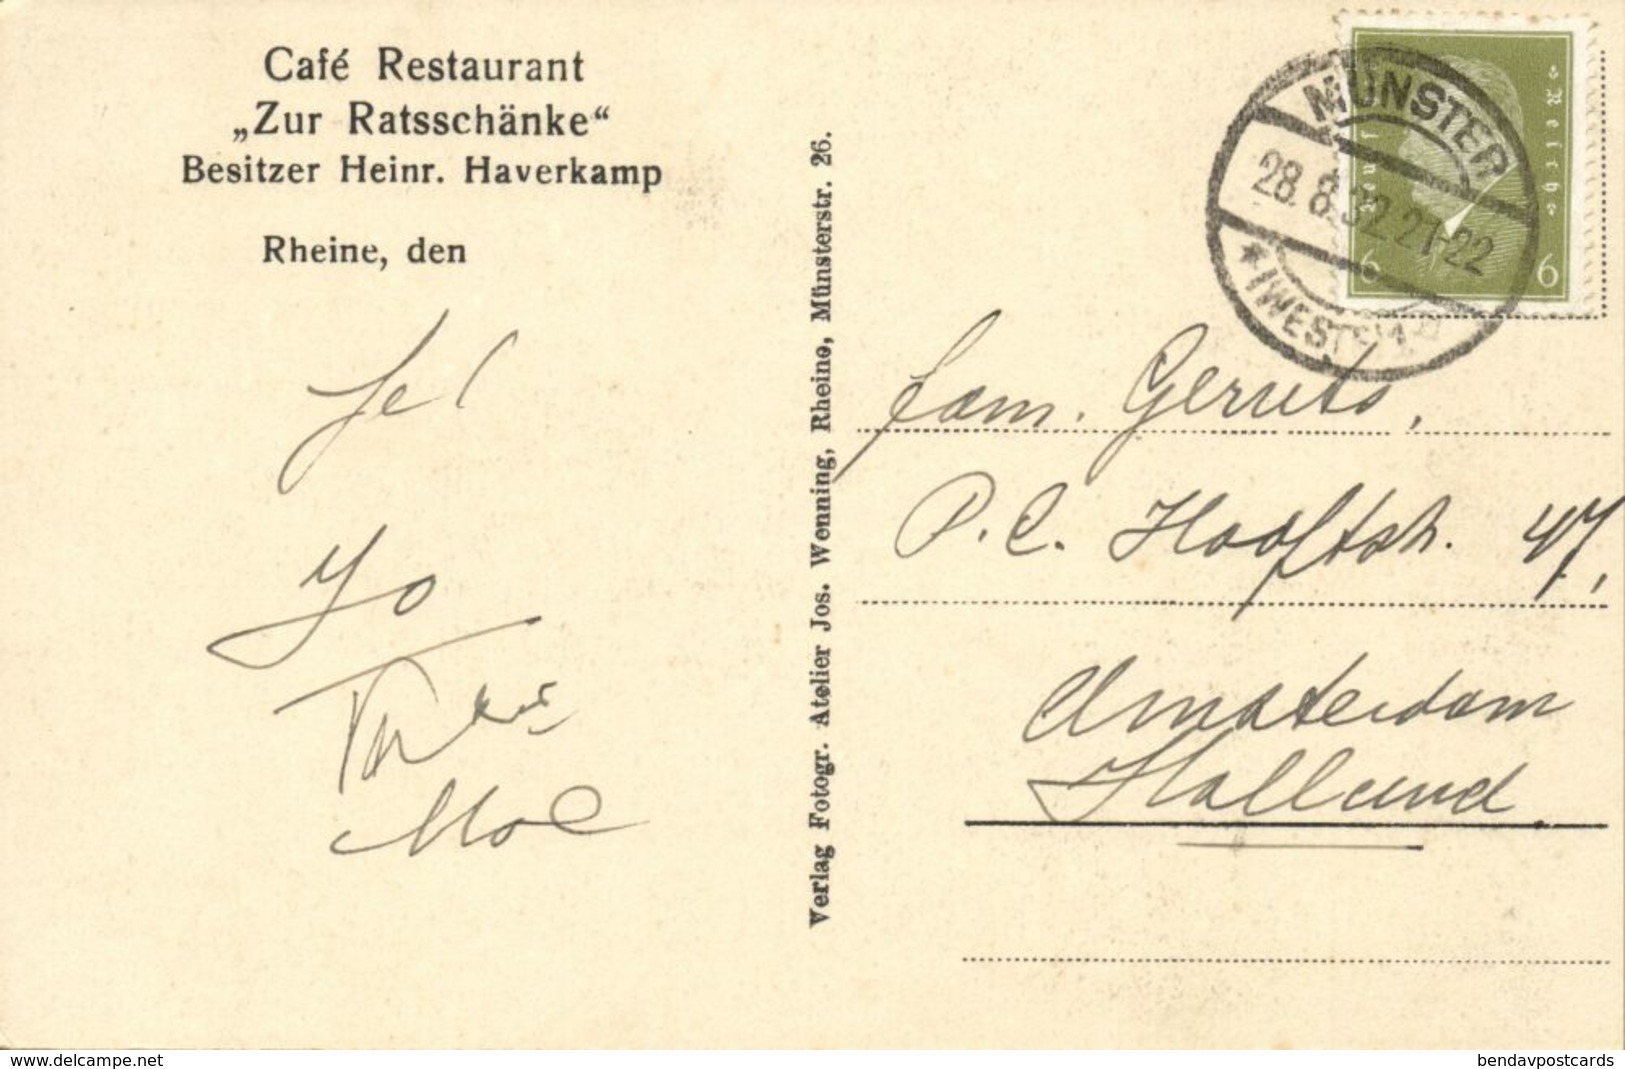 Café Restaurant
„Zur Ratsschänke“
Besitzer Heinr. Haverkamp
Rheine, den
Jel
Jo
Moe
Verlag Fotogr. Atelier Jos. Wenning, Rheine, Münsterstr. 26.
MÜNSTER
28.8.32.21-22
(WESTF)
Deutsches Reich
6 6
fam. Gerrits,
P.C. Hooftstr. 47,
Amsterdam
Holland.
www.delcampe.net
bendavpostcards